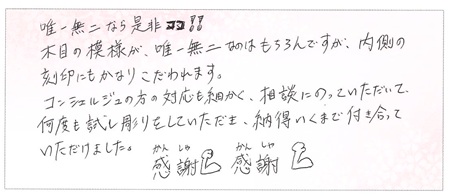 唯一無二なら是非‼
木目の模様が、唯一無二なのはもちろんですが、内側の
刻印にもかなりこだわれます。
コンシェルジュの方の対応も細かく、相談にのっていただいて、
何度も試し彫りをしていただき、納得いくまで付き合って
いただけました。 感謝 感謝
かん しゃ かん しゃ